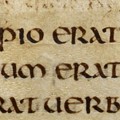 PIO ERAT
UM ERAT
RAT UERB